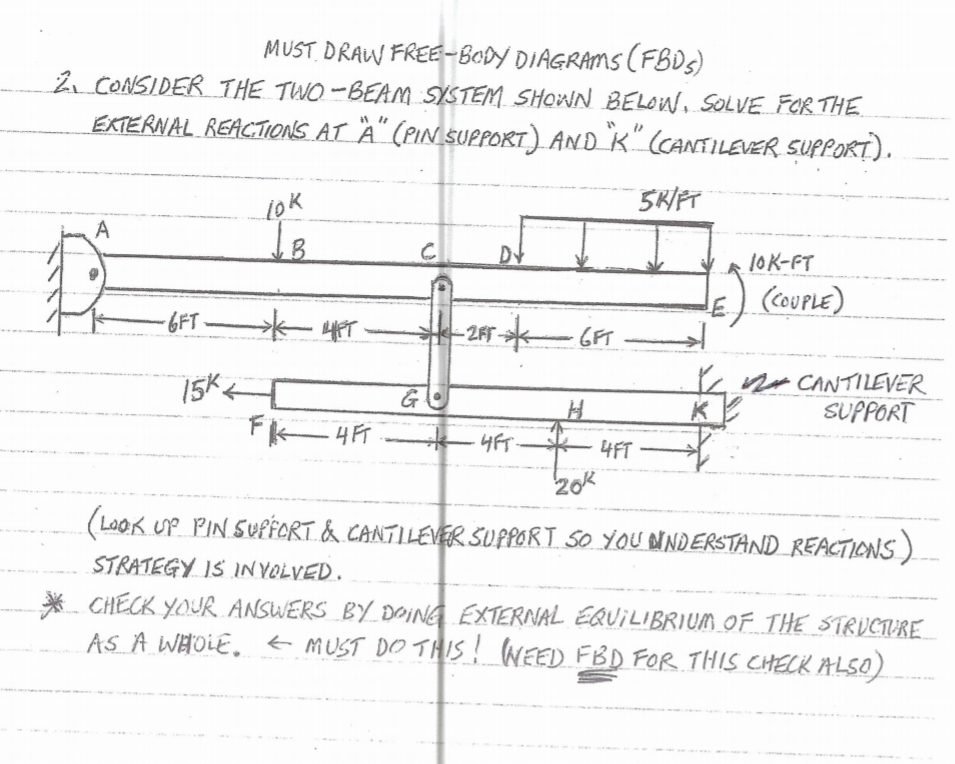 MUST DRAW FREE-BODY DIAGRAMS (FBDs)
2. CONSIDER THE TWO-BEAM SYSTEM SHOWN BELOW. SOLVE FOR THE
EXTERNAL REACTIONS AT "A" (PIN SUPPORT) AND "K" (CANTILEVER SUPPORT).
10K
5K/FT
A
B
C
D
10K-FT
E
(COUPLE)
6FT
4FT
2FT
6FT
15K
G
H
K
CANTILEVER
SUPPORT
F
4FT
4FT
4FT
20K
(LOOK UP PIN SUPPORT & CANTILEVER SUPPORT SO YOU UNDERSTAND REACTIONS)
STRATEGY IS INVOLVED.
* CHECK YOUR ANSWERS BY DOING EXTERNAL EQUILIBRIUM OF THE STRUCTURE
AS A WHOLE. ← MUST DO THIS! (NEED FBD FOR THIS CHECK ALSO)